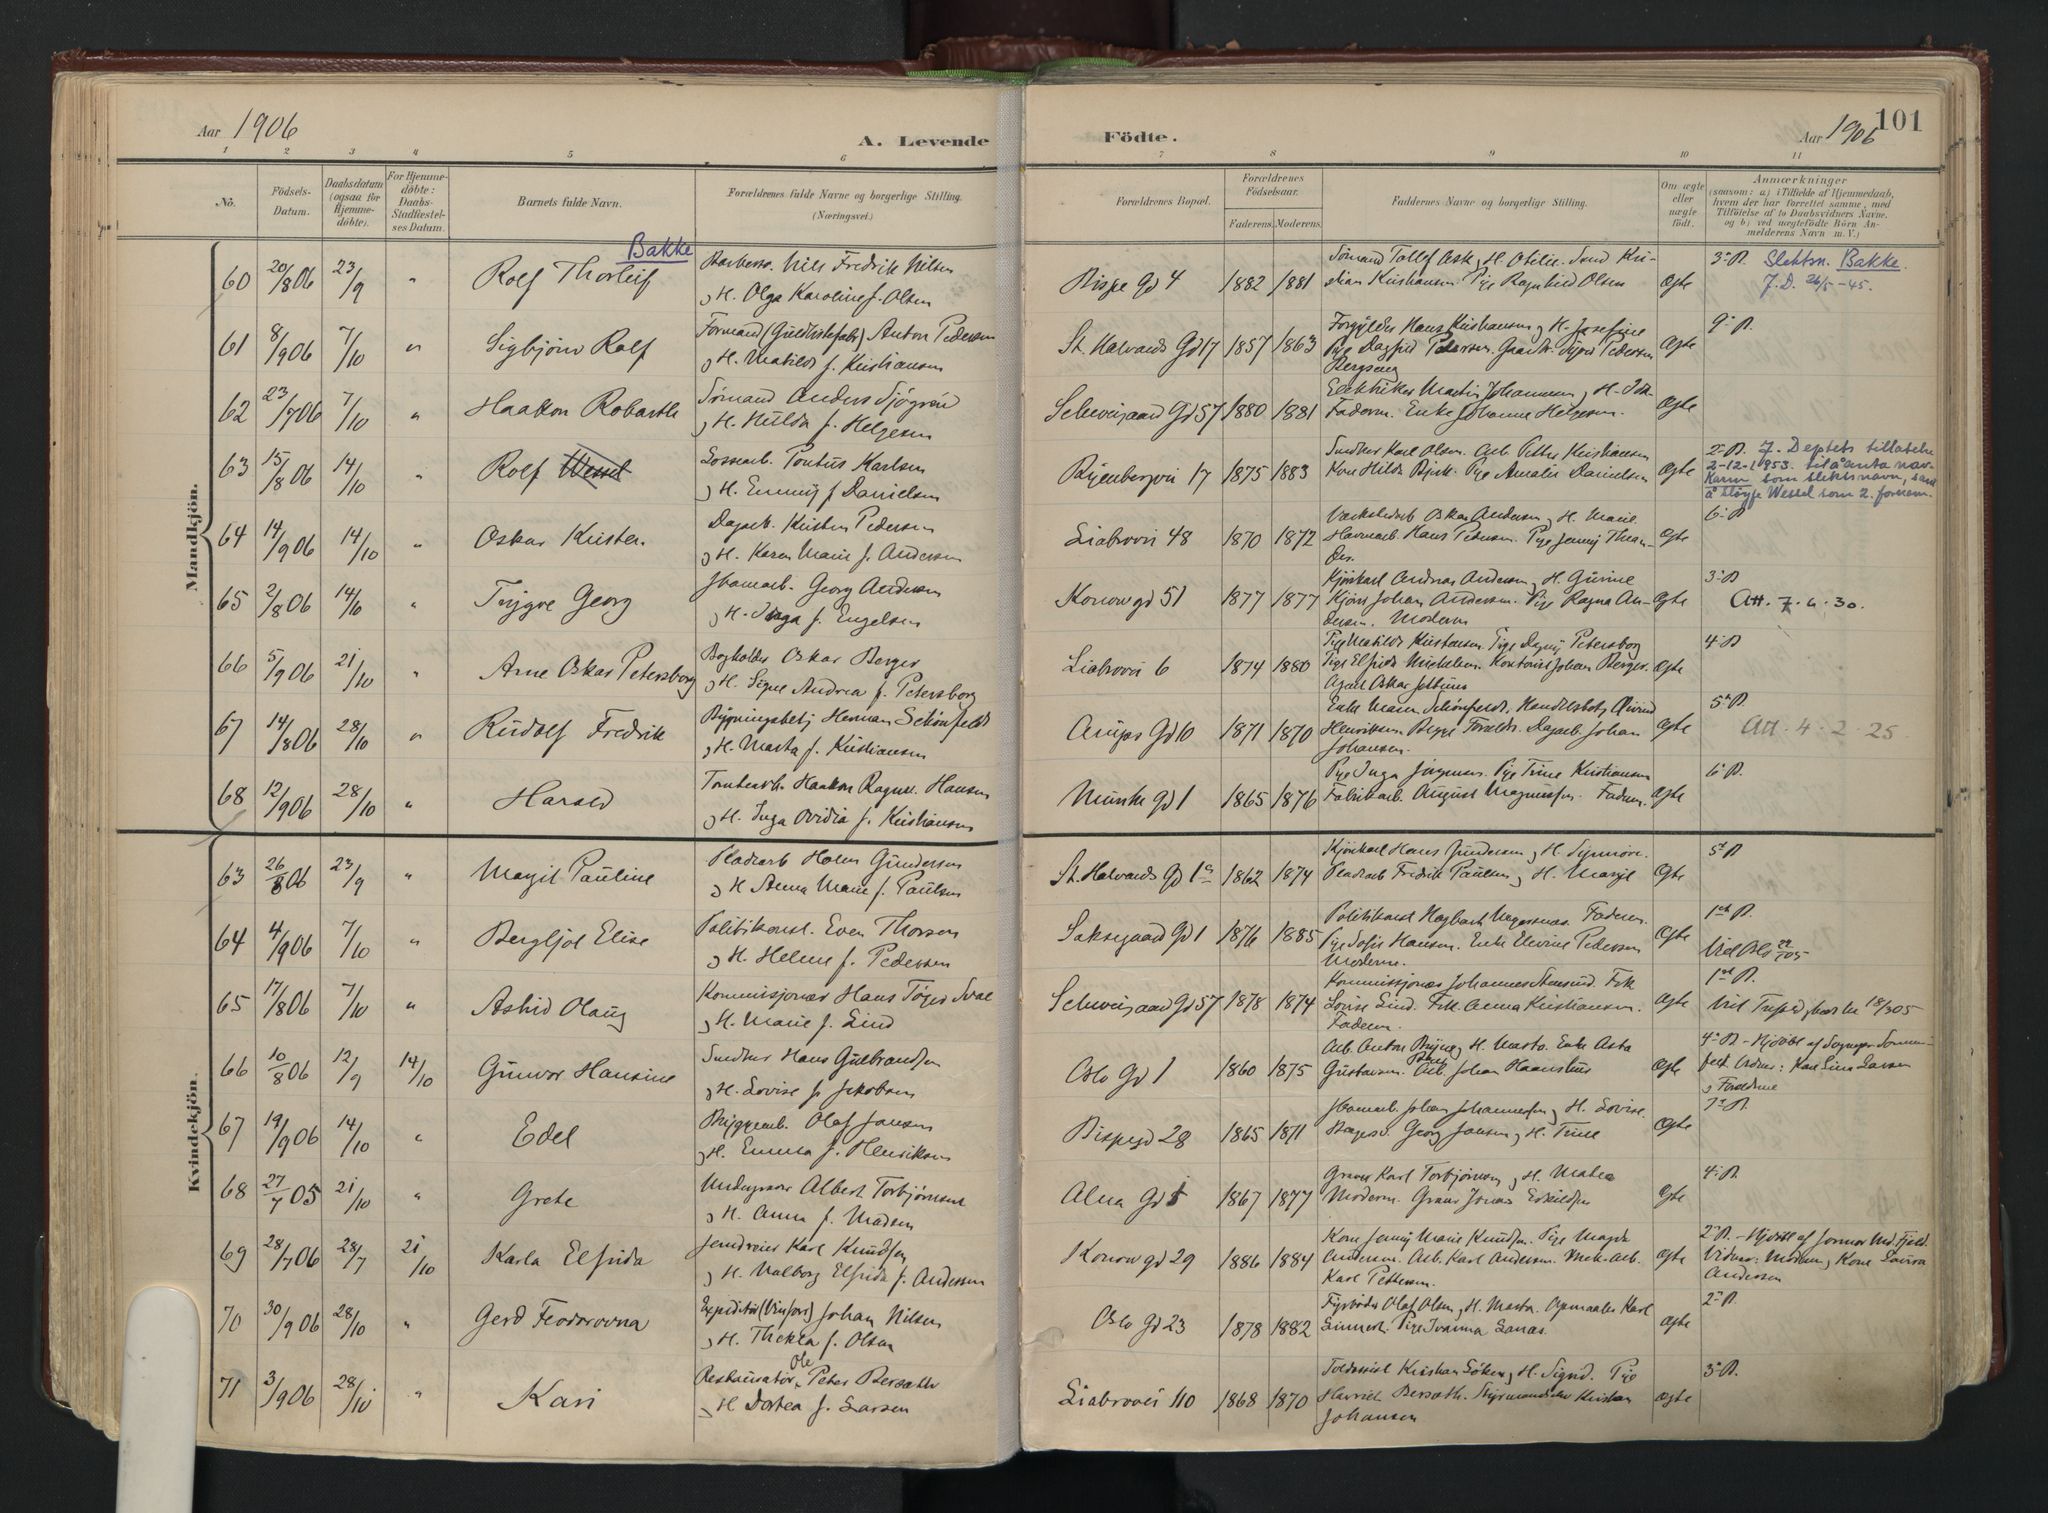 Aar 1906
A. Levende
Födte.
Aar 1906
101
1 2 3 4 5 6 7 8 9 10 11
No.
Födsels-
Datum.
Daabsdatum
(ogsaa for
Hjemme-
döbte).
For Hjemme-
döbte:
Daabs-
Stadfæstel-
ses Datum.
Barnets fulde Navn.
Forældrenes fulde Navne og borgerlige Stilling.
(Næringsvei.)
Forældrenes Bopæl.
Forældrenes
Födselsaar.
Faderens. Moderens.
Faddernes Navne og borgerlige Stilling.
Om ægte
eller
uægte
födt.
Anmærkninger
(saasom: a) i Tilfælde af Hjemmedaab,
hvem der har forrettet samme, med
Tilföielse af to Daabsvidners Navne,
og b) ved uægtefödte Börn An-
melderens Navn m. V.)
Mandkjön.
Bakke
60 20/8 06 23/9 " Rolf Thorleif
Nils Fredrik Nilsen
og H. Olga Karoline f. Olsen
Bispe Gd 4 1882 1881
Sömand Tollef Ask og H. Otilie. Kri-
stian Kristiansen. Pige Ragnhild Olsen
Ægte
3die B. Slektsn. Bakke.
J.D. 26/5-45.
61 8/9 06 7/10 " Sigbjörn Rolf
Formand Anton Pedersen
og H. Matilde f. Kristiansen
St. Halvards Gd 17 1857 1863
Forgylder Hans Kristiansen og H. Josefine
Pige Dagfrid Pedersen. Pedersen
Bergseng
Ægte
9de B.
62 23/7 06 7/10 " Haakon Robarth
Sömand Anders Sjögren
og H. Hulda f. Helgesen
Schweigaard Gd 57 1880 1881
Elektriker Martin Johannesen og H. Ida
Faderen. Enke Johanne Helgesen.
Ægte
63 15/8 06 14/10 " Rolf Wessel
Pontus Karlsen
og H. Emmy f. Danielsen
Ryenbergvei 17 1875 1883
Snedker Karl Olsen. Arb. Petter Kristiansen
Kone Hilda Pige Amalie Danielsen
Ægte
2det B. J. Deptets tillatelse
2-12-1953. til å anta nav-
Karm som slektsnavn, samt
å sløyfe Wessel som 2. fornavn.
64 14/9 06 14/10 " Oskar Kristen
Dagarb. Kristen Pedersen
og H. Karen Marie f. Andersen
Liabrovei 48 1870 1872
Værkstedarb Oskar Andersen og H. Marie
Havnearb Hans Petersen. Pige Jenny
Ægte
6te B
65 2/8 06 14/10 " Trygve Georg
Georg Andersen
og H. Inga f. Engelsen
Konow gd 51 1877 1877
Kjörekarl Andreas Andersen og H. Gurine
Kjörer Johan Andersen. Pige Ragna An-
dersen. Moderen
Ægte
3die B
Att. 7.4.30.
66 5/9 06 21/10 " Arne Oskar Petersborg
Bogholder Oskar Berger
og H. Signe Andrea f. Petersborg
Liabrovei 6 1874 1880
Pige Matilde Kristiansen. Pige Dagny Petersborg
Pige Elfrida Michelsen. Kontorist Johan Berger.
Agent Oskar
Ægte
4de B
67 14/8 06 28/10 " Rudolf Fredrik
Bygningsbetj Herman Schönfeldt
og H. Marta f. Kristiansen
Arups Gd 6 1871 1870
Enke Maren Schönfeldt. Handelsbetj Øivind
Henriksen Dagarb Johan
Johansen.
Ægte
5te B.
Att. 4.2.25.
68 12/9 06 28/10 " Harald
Tomtearb. Haakon Ragnv. Hansen
og H. Inga Ovidia f. Kristiansen
Munke Gd 1 1865 1876
Pige Inga Jörgensen. Pige Trine Kristiansen
Fabrikarb. August Magnussen. Faderen.
Ægte
6te B.
Kvindekjön.
63 26/8 06 23/9 " Margit Pauline
Pladsarb Holm Gundersen
og H Anna Marie f. Paulsen
St. Halvards Gd 1a 1862 1874
Kjörekarl Hans Gundersen og H. Synnöve.
Pladsarb Fredrik Paulsen og H. Margit
Ægte
5te B
64 4/9 06 7/10 " Bergljot Elise
Politikonst. Even Thorsen
og H. Helene f. Pedersen
Saxegaard Gd 1 1876 1885
Politikonst Hagbart Faderen.
Pige Sofie Hansen. Enke Elevine Pedersen
Moderen.
Ægte
1ste B.
Viet Oslo 22/ 05
65 17/8 06 7/10 " Astrid Olaug
Kommissjonær Hans Töger Svae
og H. Marie f. Lind
Schweigaard Gd 57 1878 1874
Kommissjonær Johannes Frk
Lovise Lind. Frk. Anna Kristiansen.
Faderen.
Ægte
1ste B.
Viet 18/3 05
66 10/8 06 12/9 14/10 Gunvor Hansine
Snedker Hans Gulbrandsen
og H. Lovise f. Jakobsen
Oslo Gd 1 1860 1875
Arb. Anton og H. Marta. Enke Asta
Gustavsen. Arb. Johan
Ægte
4de B. - Hjdöbt af Sognepr
Vidner: Kone Lina Larsen
og Forældrene
67 19/9 06 14/10 " Edel
Bryggearb. Olaf Jansen
og H. Emma f. Henriksen
Bispegd 28 1865 1871
Johan Johannessen og H. Lovise.
Georg Jansen og H. Trine
Ægte
7de B.
68 27/7 05 21/10 " Grete
Albert Torbjörnsen
og H. Anna f. Madsen
Alna Gd 5 1867 1877
Graver Karl Torbjörnsen og H. Matea
Moderen. Graver Jonas Eskildsen
Ægte
4de B.
69 28/7 06 28/7 21/10 Karla Elfrida
Jerndreier Karl Knudsen
og H. Valborg Elfrida f. Andersen
Konow gd 29 1886 1884
Kone Jenny Marie Knudsen. Pige Magda
Andersen. Arb. Karl Andersen. Mek. arb.
Karl Pettersen.
Ægte
2det B. - Hjdöbt af Jormor
Vidner: Moderen og Kone Laura
Andersen
70 30/9 06 28/10 " Gerd Feodorovna
Expeditör (Vinforr.) Johan Nilsen
og H. Thekla f. Olsen
Oslo Gd 23 1878 1882
Fyrböder Olaf Olsen og H. Marta. Opmaaler Karl
Pige Ivanna
Ægte
2det B.
71 3/9 06 28/10 " Kari
Restauratör Ole Peter Berseth
og H Dortea f. Larsen
Liabrovei 110 1868 1870
Toldassist Kristian og H. Sigrid. Pige
Berseth. Kristian
Johansen
Ægte
3die B.